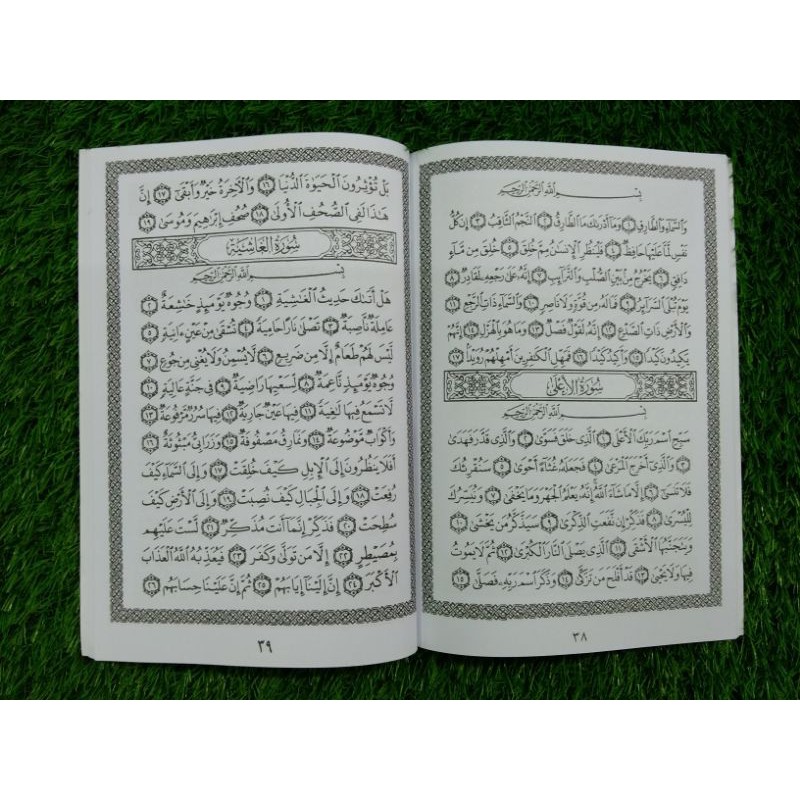 بِسْمِ اللَّهِ الرَّحْمَٰنِ الرَّحِيمِ
وَالسَّمَاءِ وَالطَّارِقِ ﴿١﴾ وَمَا أَدْرَىٰكَ مَا الطَّارِقُ ﴿٢﴾ النَّجْمُ الثَّاقِبُ ﴿٣﴾ إِن كُلُّ
نَفْسٍ لَّمَّا عَلَيْهَا حَافِظٌ ﴿٤﴾ فَلْيَنظُرِ الْإِنسَٰنُ مِمَّ خُلِقَ ﴿٥﴾ خُلِقَ مِن مَّاءٍ
دَافِقٍ ﴿٦﴾ يَخْرُجُ مِن بَيْنِ الصُّلْبِ وَالتَّرَائِبِ ﴿٧﴾ إِنَّهُ عَلَىٰ رَجْعِهِ لَقَادِرٌ ﴿٨﴾
يَوْمَ تُبْلَى السَّرَائِرُ ﴿٩﴾ فَمَا لَهُ مِن قُوَّةٍ وَلَا نَاصِرٍ ﴿١٠﴾ وَالسَّمَاءِ ذَاتِ الرَّجْعِ ﴿١١﴾
وَالْأَرْضِ ذَاتِ الصَّدْعِ ﴿١٢﴾ إِنَّهُ لَقَوْلٌ فَصْلٌ ﴿١٣﴾ وَمَا هُوَ بِالْهَزْلِ ﴿١٤﴾ إِنَّهُمْ
يَكِيدُونَ كَيْدًا ﴿١٥﴾ وَأَكِيدُ كَيْدًا ﴿١٦﴾ فَمَهِّلِ الْكَٰفِرِينَ أَمْهِلْهُمْ رُوَيْدًا ﴿١٧﴾
سُورَةُ الْأَعْلَىٰ
بِسْمِ اللَّهِ الرَّحْمَٰنِ الرَّحِيمِ
سَبِّحِ اسْمَ رَبِّكَ الْأَعْلَى ﴿١﴾ الَّذِي خَلَقَ فَسَوَّىٰ ﴿٢﴾ وَالَّذِي قَدَّرَ فَهَدَىٰ
﴿٣﴾ وَالَّذِي أَخْرَجَ الْمَرْعَىٰ ﴿٤﴾ فَجَعَلَهُ غُثَاءً أَحْوَىٰ ﴿٥﴾ سَنُقْرِئُكَ
فَلَا تَنسَىٰ ﴿٦﴾ إِلَّا مَا شَاءَ اللَّهُ إِنَّهُ يَعْلَمُ الْجَهْرَ وَمَا يَخْفَىٰ ﴿٧﴾ وَنُيَسِّرُكَ
لِلْيُسْرَىٰ ﴿٨﴾ فَذَكِّرْ إِن نَّفَعَتِ الذِّكْرَىٰ ﴿٩﴾ سَيَذَّكَّرُ مَن يَخْشَىٰ ﴿١٠﴾
وَيَتَجَنَّبُهَا الْأَشْقَى ﴿١١﴾ الَّذِي يَصْلَى النَّارَ الْكُبْرَىٰ ﴿١٢﴾ ثُمَّ لَا يَمُوتُ
فِيهَا وَلَا يَحْيَىٰ ﴿١٣﴾ قَدْ أَفْلَحَ مَن تَزَكَّىٰ ﴿١٤﴾ وَذَكَرَ اسْمَ رَبِّهِ فَصَلَّىٰ ﴿١٥﴾
٣٨
بَلْ تُؤْثِرُونَ الْحَيَوٰةَ الدُّنْيَا ﴿١٦﴾ وَالْآخِرَةُ خَيْرٌ وَأَبْقَىٰ ﴿١٧﴾ إِنَّ
هَٰذَا لَفِي الصُّحُفِ الْأُولَىٰ ﴿١٨﴾ صُحُفِ إِبْرَٰهِيمَ وَمُوسَىٰ ﴿١٩﴾
سُورَةُ الْغَاشِيَةِ
بِسْمِ اللَّهِ الرَّحْمَٰنِ الرَّحِيمِ
هَلْ أَتَىٰكَ حَدِيثُ الْغَٰشِيَةِ ﴿١﴾ وُجُوهٌ يَوْمَئِذٍ خَٰشِعَةٌ ﴿٢﴾
عَامِلَةٌ نَّاصِبَةٌ ﴿٣﴾ تَصْلَىٰ نَارًا حَامِيَةً ﴿٤﴾ تُسْقَىٰ مِنْ عَيْنٍ ءَانِيَةٍ ﴿٥﴾
لَّيْسَ لَهُمْ طَعَامٌ إِلَّا مِن ضَرِيعٍ ﴿٦﴾ لَّا يُسْمِنُ وَلَا يُغْنِي مِن جُوعٍ ﴿٧﴾
وُجُوهٌ يَوْمَئِذٍ نَّاعِمَةٌ ﴿٨﴾ لِّسَعْيِهَا رَاضِيَةٌ ﴿٩﴾ فِي جَنَّةٍ عَالِيَةٍ ﴿١٠﴾
لَّا تَسْمَعُ فِيهَا لَٰغِيَةً ﴿١١﴾ فِيهَا عَيْنٌ جَارِيَةٌ ﴿١٢﴾ فِيهَا سُرُرٌ مَّرْفُوعَةٌ ﴿١٣﴾
وَأَكْوَابٌ مَّوْضُوعَةٌ ﴿١٤﴾ وَنَمَارِقُ مَصْفُوفَةٌ ﴿١٥﴾ وَزَرَابِيُّ مَبْثُوثَةٌ ﴿١٦﴾
أَفَلَا يَنظُرُونَ إِلَى الْإِبِلِ كَيْفَ خُلِقَتْ ﴿١٧﴾ وَإِلَى السَّمَاءِ كَيْفَ
رُفِعَتْ ﴿١٨﴾ وَإِلَى الْجِبَالِ كَيْفَ نُصِبَتْ ﴿١٩﴾ وَإِلَى الْأَرْضِ كَيْفَ
سُطِحَتْ ﴿٢٠﴾ فَذَكِّرْ إِنَّمَا أَنتَ مُذَكِّرٌ ﴿٢١﴾ لَّسْتَ عَلَيْهِم
بِمُصَيْطِرٍ ﴿٢٢﴾ إِلَّا مَن تَوَلَّىٰ وَكَفَرَ ﴿٢٣﴾ فَيُعَذِّبُهُ اللَّهُ الْعَذَابَ
الْأَكْبَرَ ﴿٢٤﴾ إِنَّ إِلَيْنَا إِيَابَهُمْ ﴿٢٥﴾ ثُمَّ إِنَّ عَلَيْنَا حِسَابَهُم ﴿٢٦﴾
٣٩